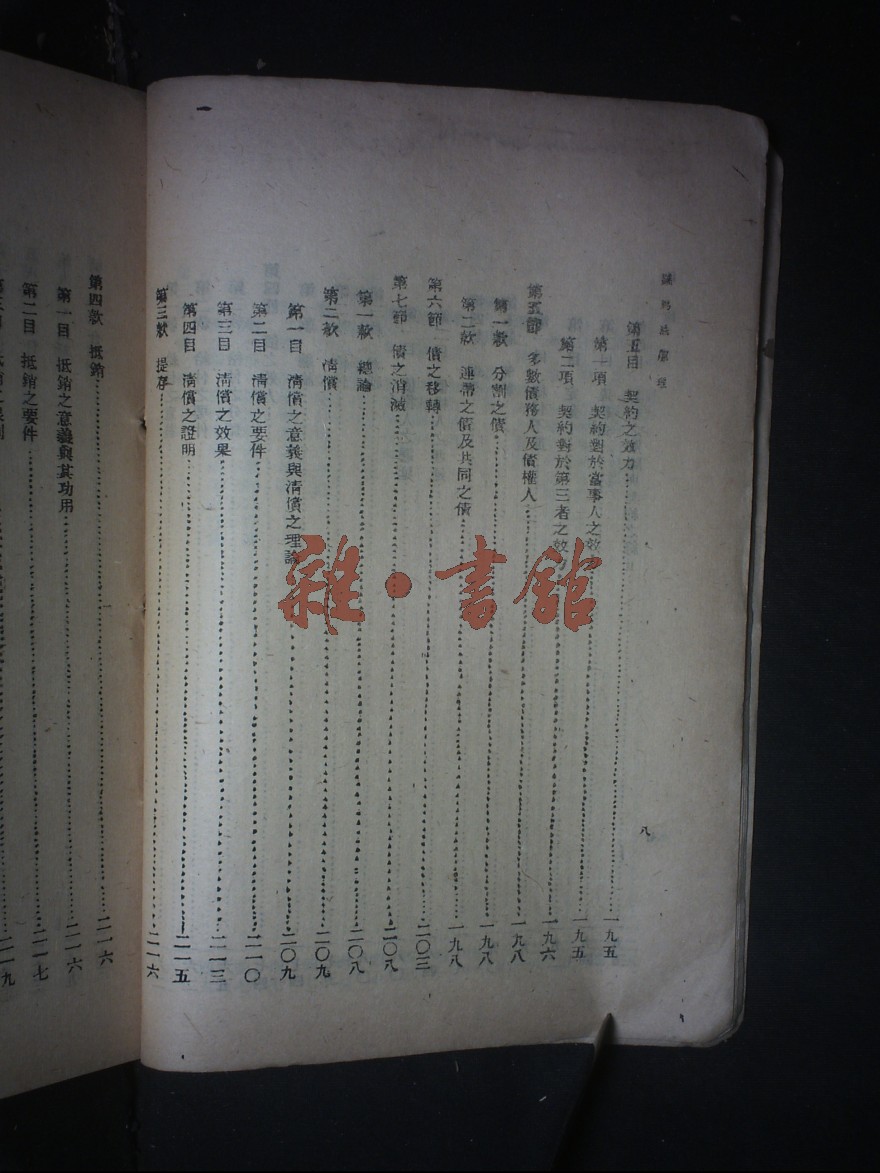 羅馬法原理
八
第五目　契約之效力……一九五
第一項　契約對於當事人之效力……一九五
第二項　契約對於第三者之效力……一九六
第五節　多數債務人及債權人……一九八
第一款　分割之債……一九八
第二款　連帶之債及共同之債……一九八
第六節　債之移轉……二〇三
第七節　債之消滅……二〇八
第一款　總論……二〇八
第二款　清償……二〇九
第一目　清償之意義與清償之理論……二〇九
第二目　清償之要件……二一〇
第三目　清償之效果……二一三
第四目　清償之證明……二一五
第三款　提存……二一六
第四款　抵銷……二一六
第一目　抵銷之意義與其功用……二一六
第二目　抵銷之要件……二一七
二一九
雜·書館